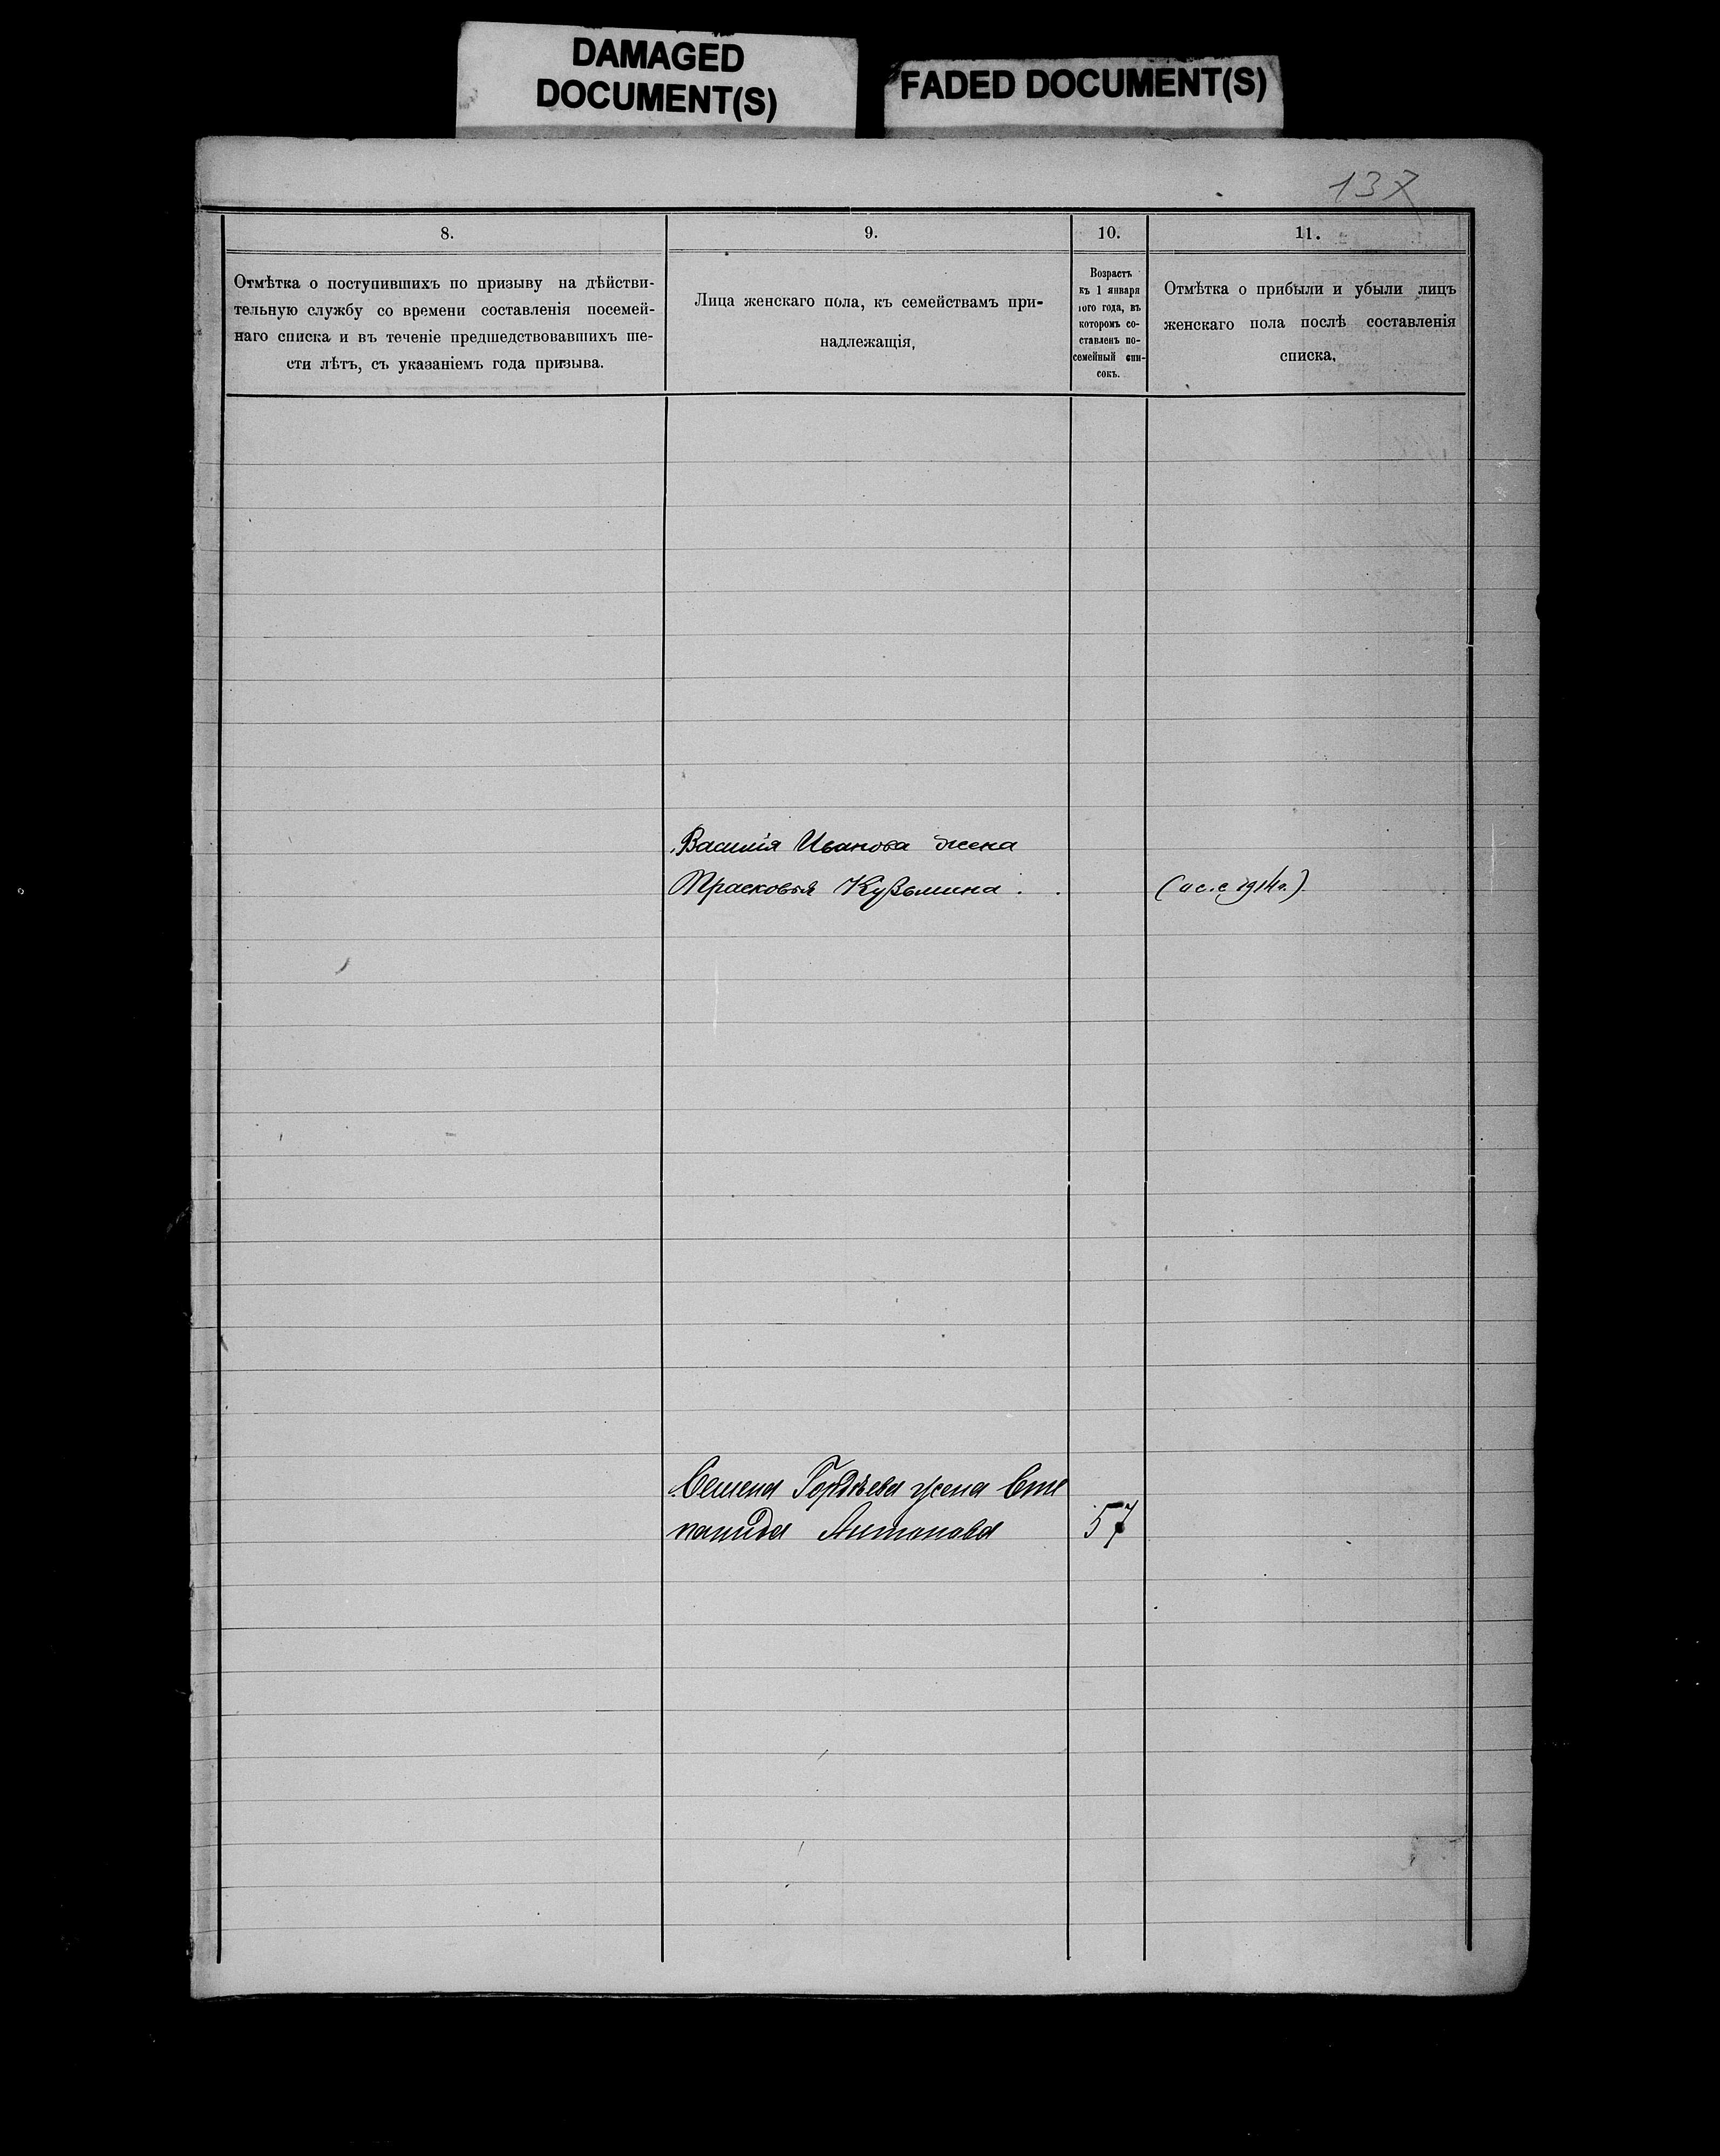 DAMAGED
DOCUMENT(S)
FADED DOCUMENT(S)
137
8.
Отмѣтка о поступившихъ по призыву на дѣйстви-
тельную службу со времени составленія посемей-
наго списка и въ теченіе предшедствовавшихъ ше-
сти лѣтъ, съ указаніемъ года призыва.
9.
Лица женскаго пола, къ семействамъ при-
надлежащія,
10.
Возрастъ
къ 1 января
того года, въ
которомъ со-
ставленъ по-
семейный спи-
сокъ.
11.
Отмѣтка о прибыли и убыли лицъ
женскаго пола послѣ составленія
списка,
Василія Иванова жена
Прасковья Кузьмина.
1914 г.)
Семена Гордѣева жена Сте
панида Антонова
57